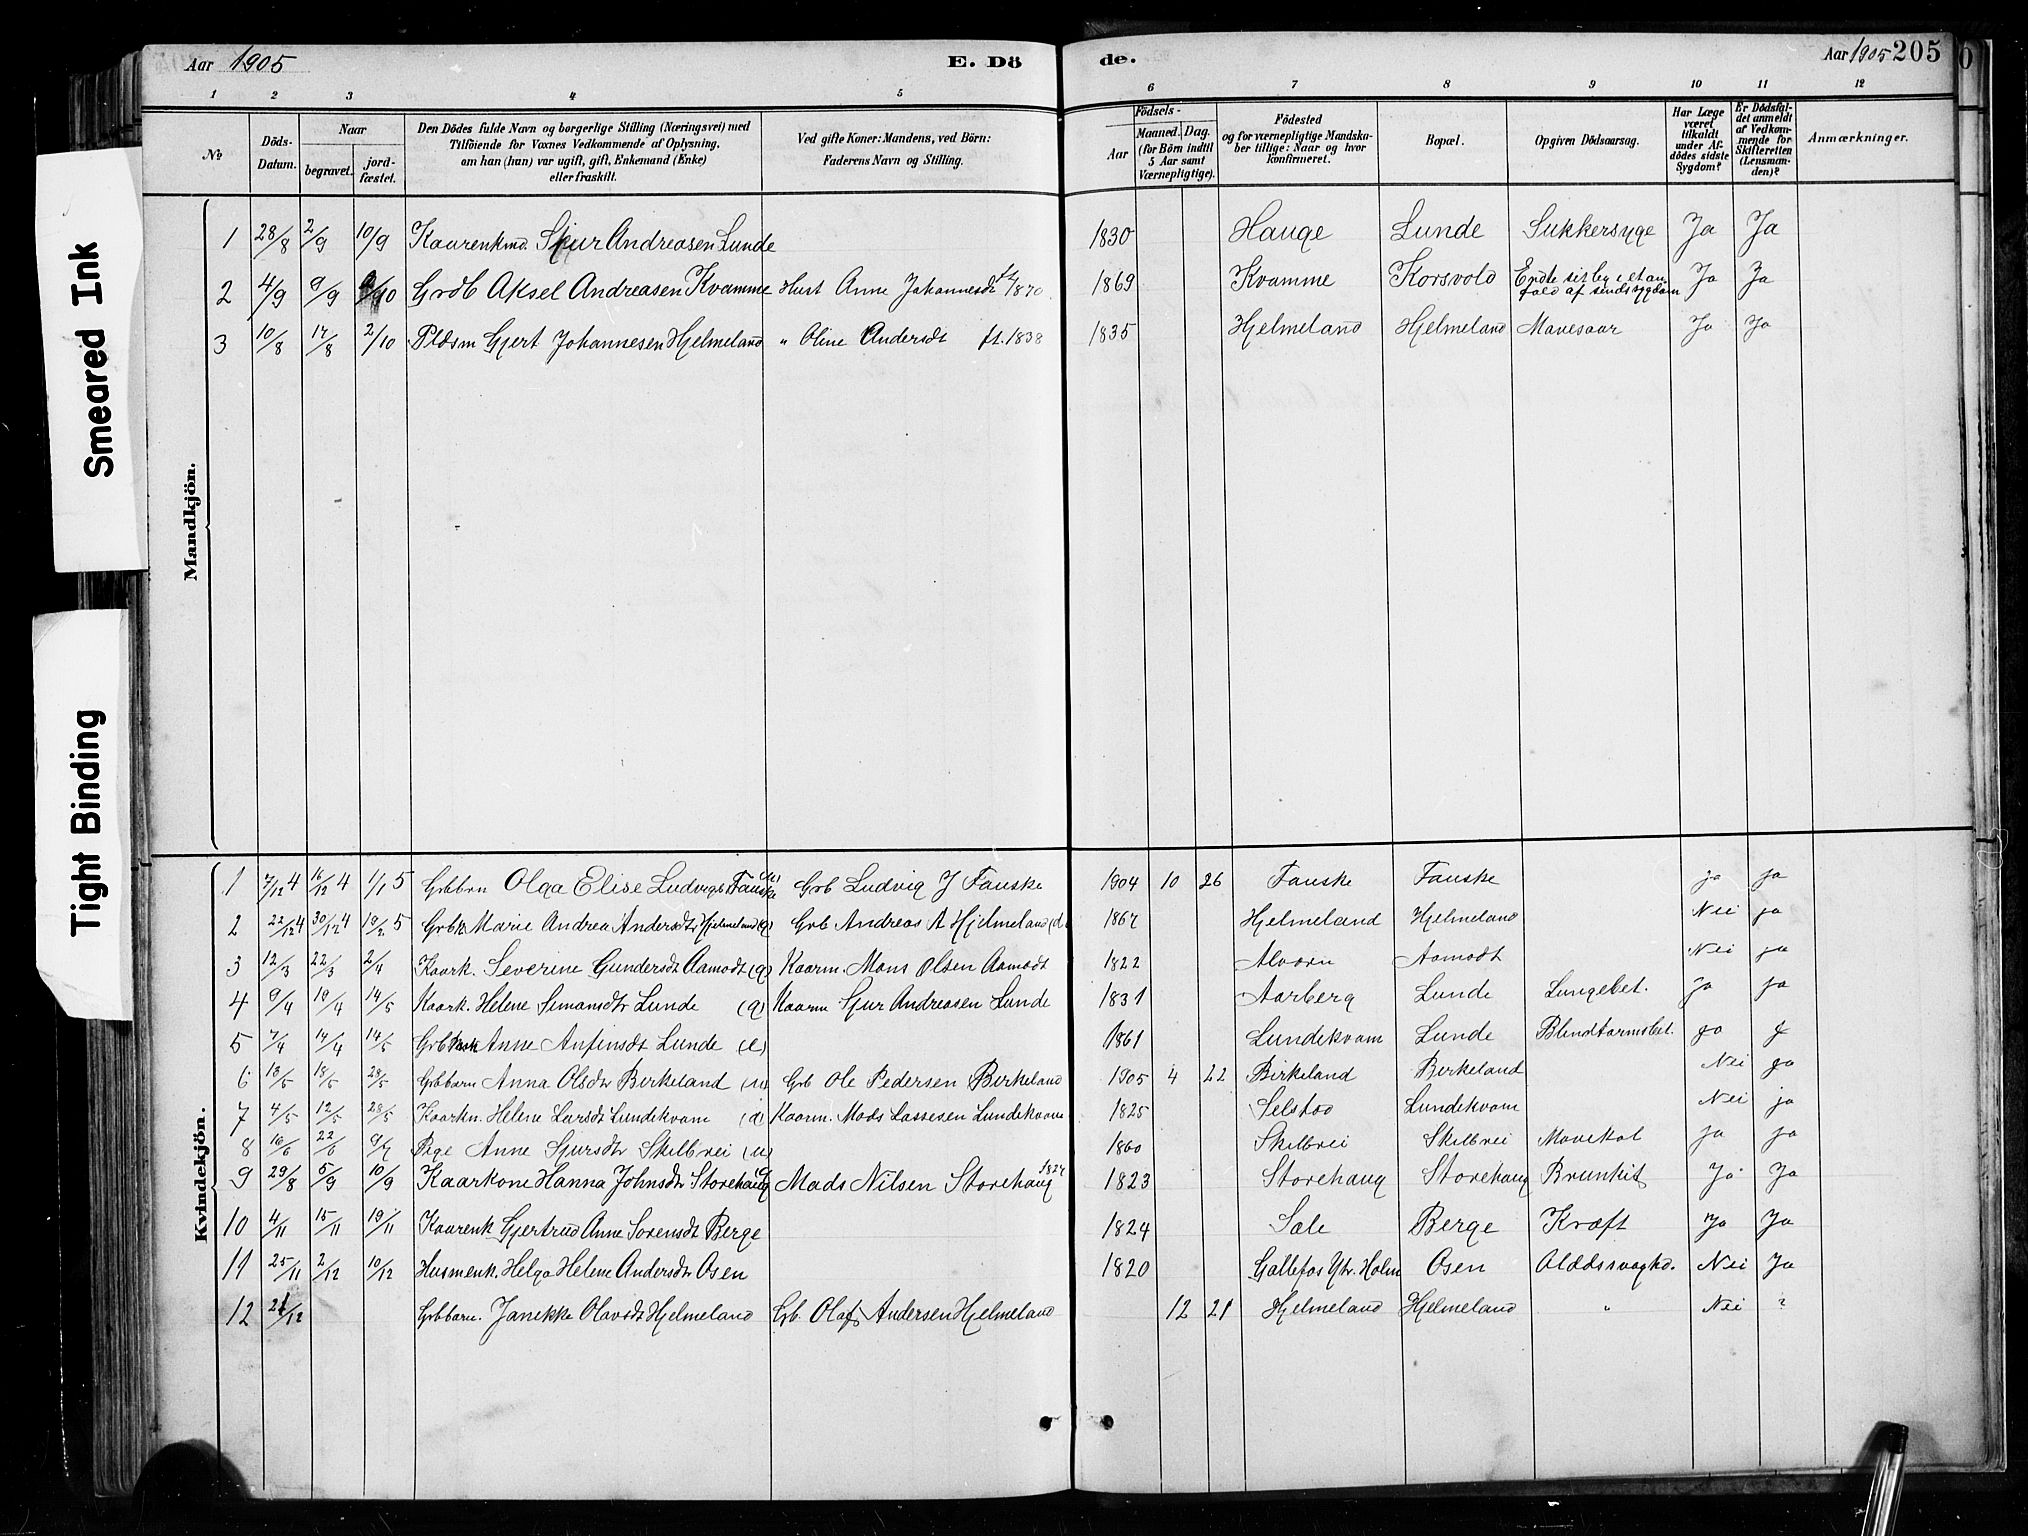 Smeared Ink
Tight Binding
Aar 1905
E. Dö
de.
Aar 1905 205
1 2 3 4 5 6 7 8 9 10 11 12
No
Döds-Datum.
Naar
begravet.
jordfæstet.
Den Dödes fulde Navn og borgerlige Stilling (Næringsvei) med
Tilföiende for Voxnes Vedkommende af Oplysning,
om han (hun) var ugift, gift, Enkemand (Enke)
eller fraskilt.
Ved gifte Koner: Mandens, ved Börn:
Faderens Navn og Stilling.
Födsels-
Aar
Maaned. Dag.
(for Börn indtil
5 Aar samt
Værnepligtige).
Födested
og for værnepligtige Mandskaber tillige: Naar og hvor
konfirmeret.
Bopæl.
Opgiven Dödsaarsag.
Har Læge
været
tilkaldt
under Afdödes sidste
Sygdom?
Er Dödsfaldet anmeldt
af Vedkommende for
Skifteretten
(Lensmanden)?
Anmærkninger.
Mandkjön.
1 28/8 2/9 10/9 Kaarenkmd. Sjur Andreasen Lunde 1830 Hauge Lunde Sukkersyge Ja Ja
2 4/9 9/9 9/10 Grdb Aksel Andreasen Kvamme Hust Anne Johannesdt ft 1870 1869 Kvamme Korsvold Endte sit liv i et anfald af sindssygdom Ja Ja
3 10/8 17/8 2/10 Pldsm Gjert Johannesen Hjelmeland " Oline Andersdt ft. 1838 1835 Hjelmeland Hjelmeland Mavesaar Ja Ja
Kvindekjön.
1 7/12 4 16/12 4 1/1 5 Grbbrn Olga Elise Ludvigsdt Fauske Grb Ludvig J Fauske 1904 10 26 Fauske Fauske ja ja
2 22/12 4 30/12 4 19/2 5 Grbk. Marie Andrea Andersdtr Hjelmeland (g) Grb Andreas A Hjelmeland 1867 Hjelmeland Hjelmeland Nei ja
3 12/3 22/3 2/4 Kaark. Severine Gundersdt Aamodt (g) Kaarm. Mons Olsen Aamodt 1822 Alvorn Aamodt Nei ja
4 9/4 19/4 14/5 Kaark. Helene Simonsdtr Lunde (g) Kaarm Sjur Andreasen Lunde 1831 Aarberg Lunde Lungebet. Ja ja
5 7/4 14/4 14/5 Grb Anne Anfinsdt Lunde (e) 1861 Lundekvam Lunde Blindtarmsbet. ja j
6 13/5 18/5 28/5 Grbbarn Anna Olsdtr Birkeland (u) Grb Ole Pedersen Birkeland 1905 4 22 Birkeland Birkeland Nei ja
7 4/5 12/5 28/5 Kaarkn. Helene Larsdt Lundekvam (g) Kaarm. Mads Lassesen Lundekvam 1825 Selstad Lundekvam Nei ja
8 16/6 22/6 9/7 Pige Anne Sjursdtr Skilbrei (u) 1860 Skilbrei Skilbrei Mavekat ja ja
9 29/8 5/9 10/9 Kaarkone Hanna Johnsdtr Storehaug g Mads Nilsen Storehaug 1827 1823 Storehaug Storehaug Brunkit Ja Ja
10 4/11 15/11 19/11 Kaarenk Gjertrud Anne Sorensdt Berge 1824 Sæle Berge Kræft Ja Ja
11 25/11 2/12 10/12 Husmenk. Helga Helene Andersdtr Osen 1820 Gallefos Ytr. Holm Osen Alddsvaghd. Nei Ja
12 21/12 Grbbarn. Janikke Olavsdt Hjelmeland Grb. Olaf Andersen Hjelmeland 12 21 Hjelmeland Hjelmeland " Nei ?